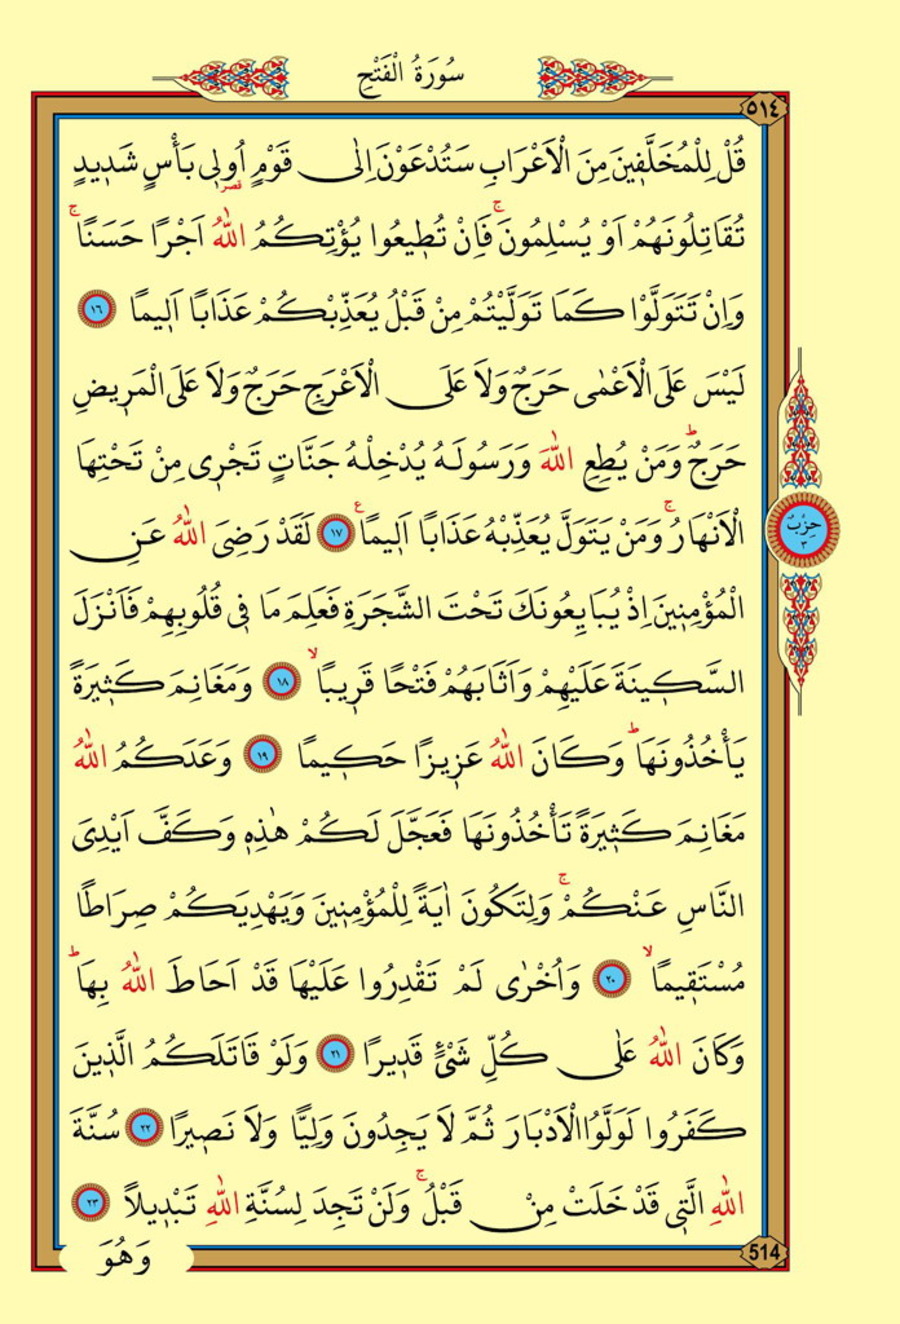 سُورَةُ الْفَتْحِ
٥١٤
قُلْ لِلْمُخَلَّفٖينَ مِنَ الْاَعْرَابِ سَتُدْعَوْنَ اِلٰى قَوْمٍ اُولٖى بَأْسٍ شَدٖيدٍ
قصر
تُقَاتِلُونَهُمْ اَوْ يُسْلِمُونَۚ فَاِنْ تُطٖيعُوا يُؤْتِكُمُ اللّٰهُ اَجْرًا حَسَنًاۚ
وَاِنْ تَتَوَلَّوْا كَمَا تَوَلَّيْتُمْ مِنْ قَبْلُ يُعَذِّبْكُمْ عَذَابًا اَلٖيمًا ١٦
لَيْسَ عَلَى الْاَعْمٰى حَرَجٌ وَلَا عَلَى الْاَعْرَجِ حَرَجٌ وَلَا عَلَى الْمَرٖيضِ
حَرَجٌؕ وَمَنْ يُطِعِ اللّٰهَ وَرَسُولَهُ يُدْخِلْهُ جَنَّاتٍ تَجْرٖى مِنْ تَحْتِهَا
الْاَنْهَارُۚ وَمَنْ يَتَوَلَّ يُعَذِّبْهُ عَذَابًا اَلٖيمًا ع ١٧ لَقَدْ رَضِىَ اللّٰهُ عَنِ
حِزْبٌ
٣
الْمُؤْمِنٖينَ اِذْ يُبَايِعُونَكَ تَحْتَ الشَّجَرَةِ فَعَلِمَ مَا فٖى قُلُوبِهِمْ فَاَنْزَلَ
السَّكٖينَةَ عَلَيْهِمْ وَاَثَابَهُمْ فَتْحًا قَرٖيبًاۙ ١٨ وَمَغَانِمَ كَثٖيرَةً
يَأْخُذُونَهَاؕ وَكَانَ اللّٰهُ عَزٖيزًا حَكٖيمًا ١٩ وَعَدَكُمُ اللّٰهُ
مَغَانِمَ كَثٖيرَةً تَأْخُذُونَهَا فَعَجَّلَ لَكُمْ هٰذِهٖ وَكَفَّ اَيْدِىَ
النَّاسِ عَنْكُمْۚ وَلِتَكُونَ اٰيَةً لِلْمُؤْمِنٖينَ وَيَهْدِيَكُمْ صِرَاطًا
مُسْتَقٖيمًاۙ ٢٠ وَاُخْرٰى لَمْ تَقْدِرُوا عَلَيْهَا قَدْ اَحَاطَ اللّٰهُ بِهَاؕ
وَكَانَ اللّٰهُ عَلٰى كُلِّ شَىْءٍ قَدٖيرًا ٢١ وَلَوْ قَاتَلَكُمُ الَّذٖينَ
كَفَرُوا لَوَلَّوُا الْاَدْبَارَ ثُمَّ لَا يَجِدُونَ وَلِيًّا وَلَا نَصٖيرًا ٢٢ سُنَّةَ
اللّٰهِ الَّتٖى قَدْ خَلَتْ مِنْ قَبْلُۚ وَلَنْ تَجِدَ لِسُنَّةِ اللّٰهِ تَبْدٖيلًا ٢٣
514
وَهُوَ